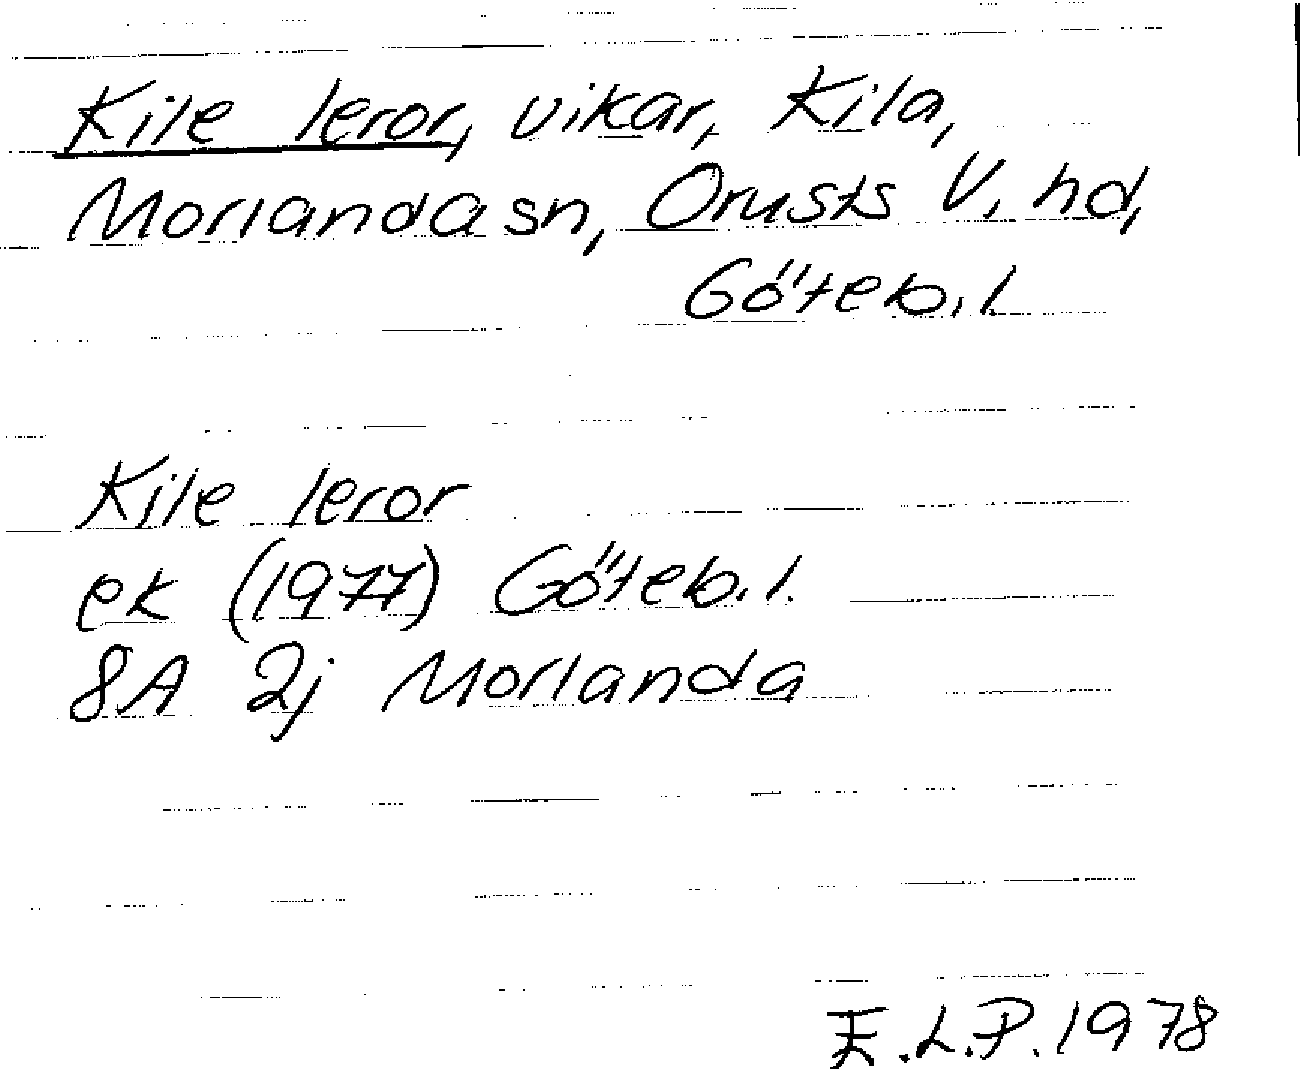 Kile leror, vikar, Kila,
Morlanda sn, Orusts V. hd,
Göteb. l.
Kile leror
ek (1977) Göteb. l.
8A 2j Morlanda
E.L.P. 1978